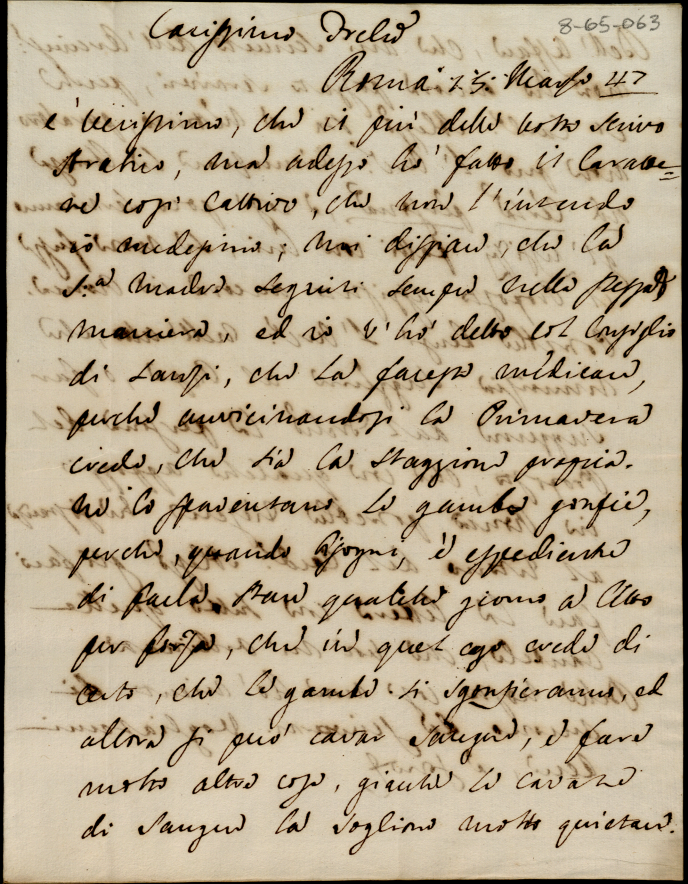 8-65-063
Carissimo Frelo
Roma 25 Marzo 47
è verissimo, che il più delle volte scrivo
stracco, ma adesso hò fatto il Caratte=
re così Cattivo, che non l'intendo
io medesimo; mi dispiace, che la
S.a madre seguiti sempre nella stessa
maniera, ed io v'hò detto col Consiglio
di Lanzi, che la facesse medicare,
perche avvicinandosi la Primavera
credo, che sia la staggione propria.
ne lo spaventano le gambe gonfie,
perche, quando bisogni, è espediente
di farla stare qualche giorno à letto
per forza, che in quel caso crede di
certo, che le gambe si sgonfieranno, ed
allora si può cavar Sangue, e fare
molte altre cose, giache le cavate
di Sangue la sogliono molto quietare.